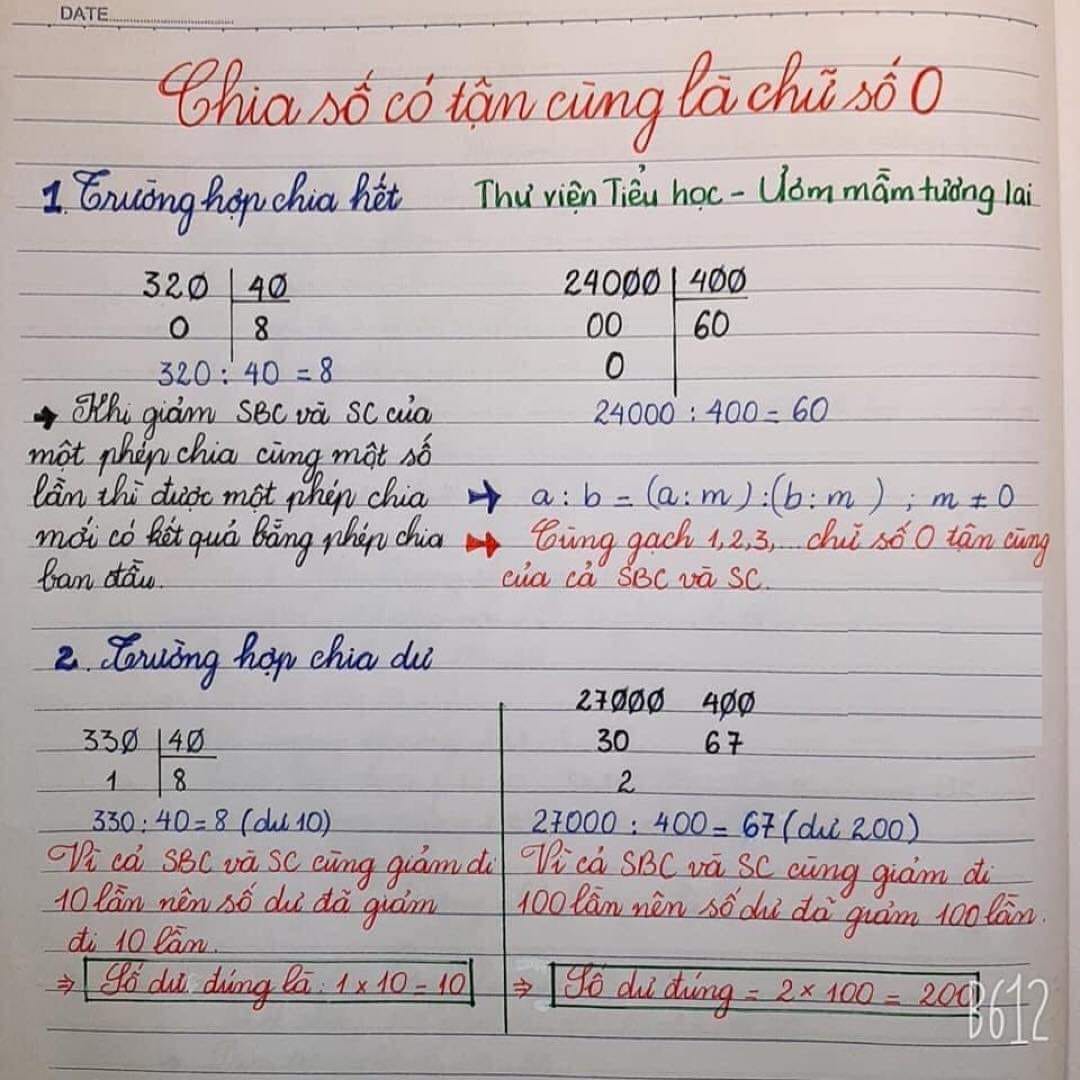 DATE
Chia số có tận cùng là chữ số 0
1. Trường hợp chia hết
Thư viện Tiểu học - Ươm mầm tương lai
320 40
0 8
320 : 40 = 8
24000 400
00 60
0
24000 : 400 = 60
→ Khi giảm SBC và SC của
một phép chia cùng một số
lần thì được một phép chia
mới có kết quả bằng phép chia
ban đầu.
→ a : b = (a : m) : (b : m) ; m ≠ 0
→ Cùng gạch 1,2,3,... chữ số 0 tận cùng
của cả SBC và SC.
2. Trường hợp chia dư
330 40
1 8
330 : 40 = 8 (dư 10)
Vì cả SBC và SC cùng giảm đi
10 lần nên số dư đã giảm
đi 10 lần.
⇒ Số dư đúng là : 1 x 10 = 10
27000 400
30 67
2
27000 : 400 = 67 (dư 200)
Vì cả SBC và SC cùng giảm đi
100 lần nên số dư đã giảm 100 lần.
⇒ Số dư đúng = 2 x 100 = 200
B612